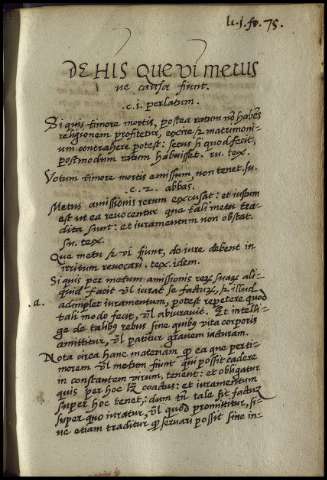 li. j. fo. 75.
DE HIS QUE VI METUS
ve causa fiunt.
.c.i. perlatum.
Si quis timore mortis, postea ratum nõ habẽs
religionem profitetur, exire et matrimoni-
um contrahere potest: secus si quod fecit,
postmodum ratum habuisset. su. tex.
Votum timore mortis emissum, non tenet. su.
.c. 2. abbas.
Metus amissionis rerum excusat: et iustum
est ut ea revocentur que tali metu tra-
dita sunt: et iuramentum non obstat.
su. tex.
Que metu et vi fiunt, de iure debent in
irritum revocari. tex. idem.
Si quis per metum amissionis rerum ali-
quid facit vel iurat se facturum, et illud
.a. adimplet iuramentum, potest repetere quod
tali modo fecit, vel abiuravit. Et intelli-
ge de talibus rebus sine quibus vita corporis
amittitur, vel patitur gravem iacturam.
Nota circa hanc materiam quod ea que per ti-
morem vel metum fiunt qui possit cadere
in constantem virum, tenent: et obligatur
quis per hoc licet coactus: et iuramentum
super hoc tenet; dum tamen tale sit factum
super quo iuratur, vel quod promittitur, si-
ve etiam traditur quod servari possit sine in-